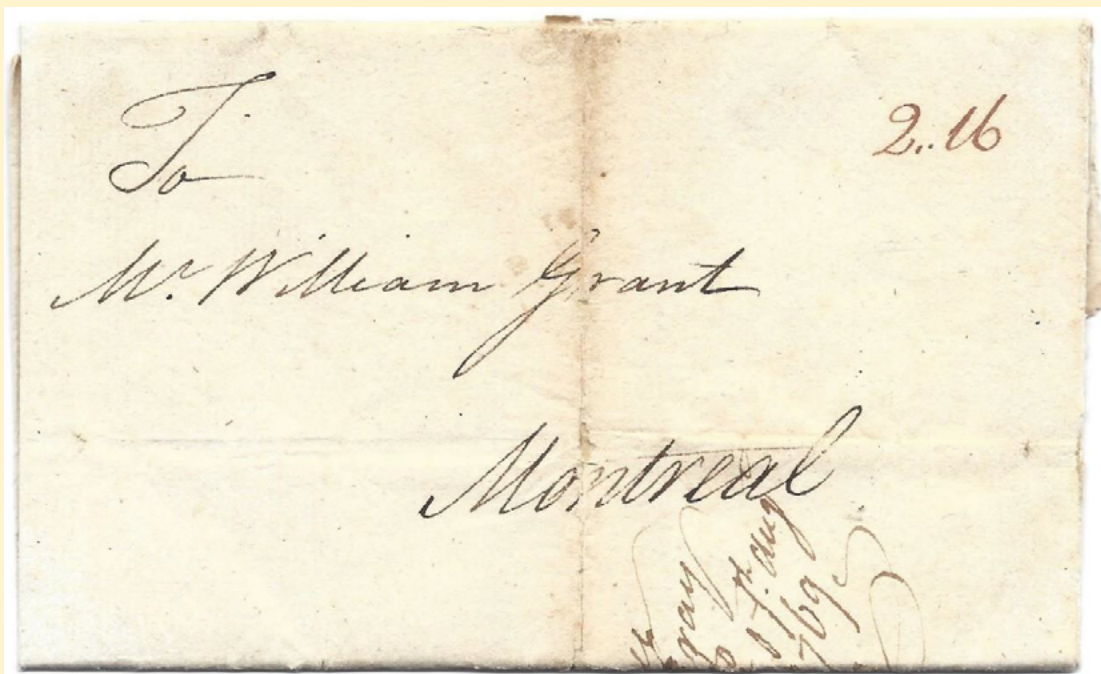 To
2..16
Mr. William Grant
Montreal
Gray
7th. Aug
769